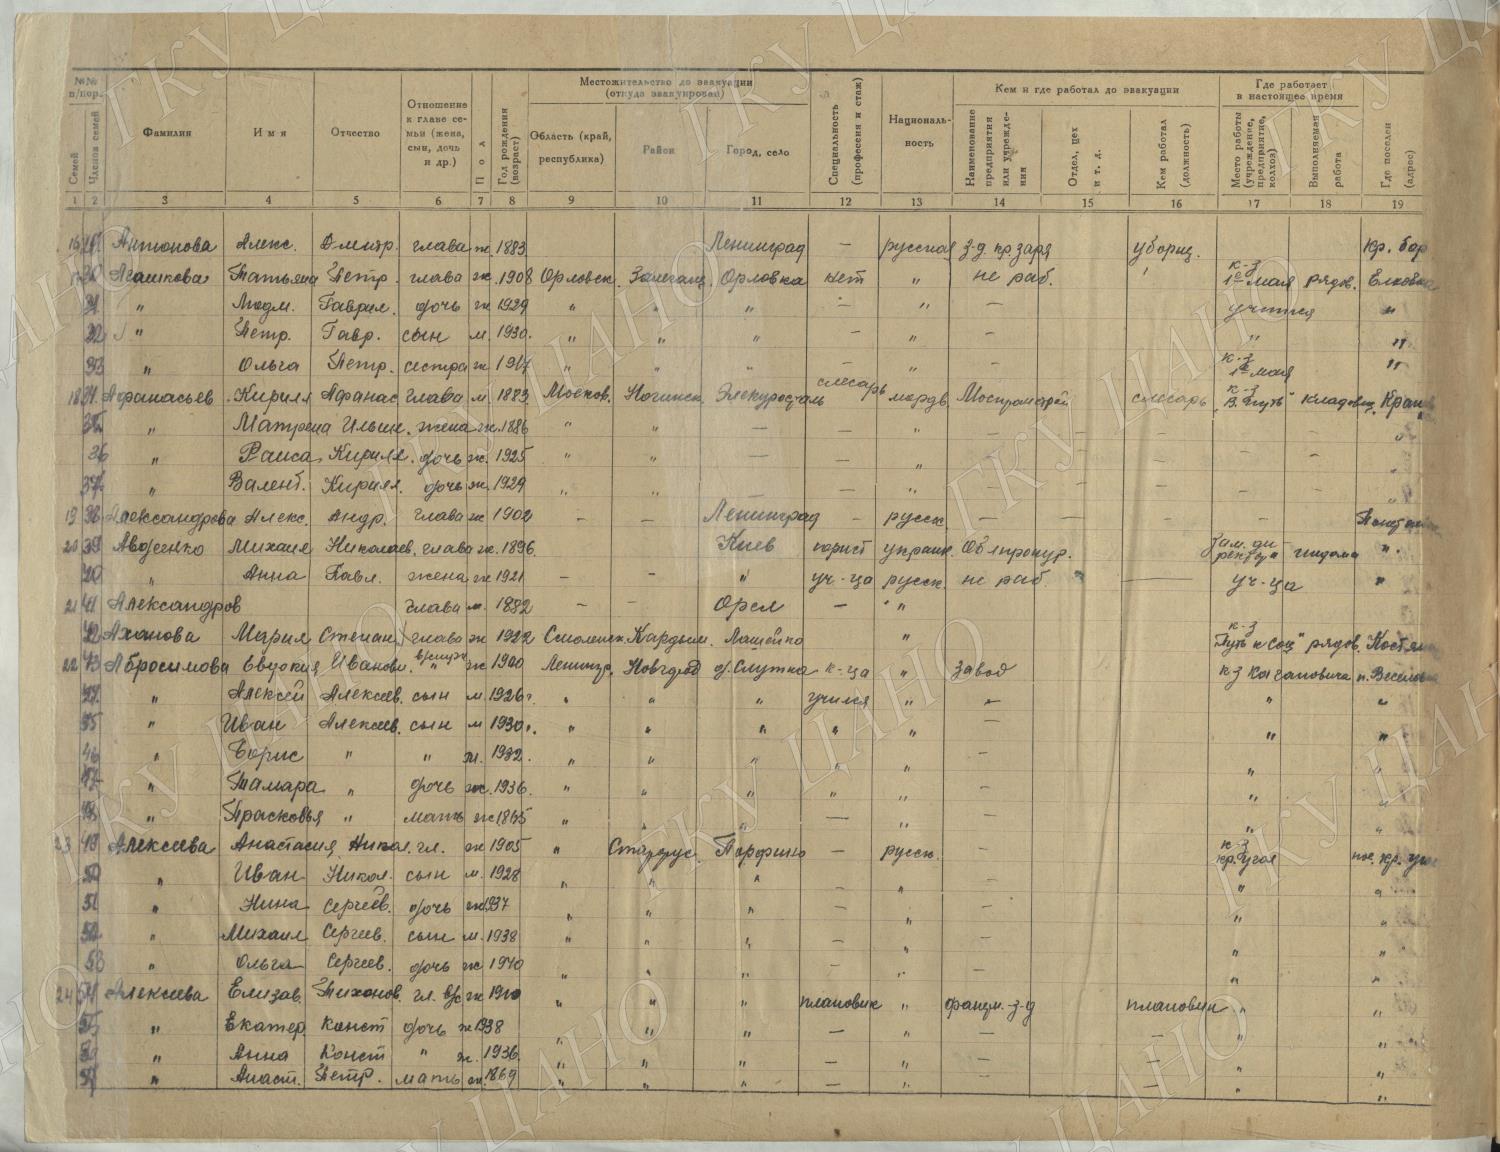 №№ п/пор.
Семей
Членов семей
Фамилия
Имя
Отчество
Отношение к главе семьи (жена, сын, дочь и др.)
Пол
Год рождения (возраст)
Местожительство до эвакуации (откуда эвакуирован)
Область (край, республика)
Район
Город, село
Специальность (профессия и стаж)
Националь-
ность
Кем и где работал до эвакуации
Наименование предприятия или учреждения
Отдел, цех и т. д.
Кем работал (должность)
Где работает в настоящее время
Место работы (учреждение, предприятие, колхоз)
Выполняемая работа
Где поселен (адрес)
1 2 3 4 5 6 7 8 9 10 11 12 13 14 15 16 17 18 19
16 Антонова Алекс. Дмитр. глава ж. 1883 Ленинград — русская з-д. кр. заря уборщ. кр. бор
30 Агашкова Татьяна Петр. глава ж 1908 Орловск. Залегощ. Орловка нет " не раб. к-з 1е мая рядов. Елховка
31 " Людм. Гаврил. дочь ж 1929 " " " — " — учится "
32 " Петр. Гавр. сын м. 1930. " " " — " — " "
33 " Ольга Петр. сестра ж 1917 " " " — " — к-з 1е мая "
18 34 Афанасьев Кирилл Афанас. глава м 1883 Москов. Ногинск. Электросталь слесарь мордв. слесарь к-з "В. путь" кладовщ.
35 " Матрена Ильин. жена ж. 1886 " " — — " — — — — — "
36 " Раиса Кирилл. дочь ж. 1925 " " — — " — — — — — "
37 " Валент. Кирилл. дочь ж. 1929 " " — — " — — — — — "
19 38 Александрова Алекс. Андр. глава ж 1902 — — Ленинград — русск — — — — —
20 39 Авдеенко Михаил Николаев. глава 1896. Киев юрист украин. Облпрокур. зам. ди- "
40 " Анна Павл. жена ж 1921 — — " уч-ца русск. не раб. — уч-ца "
21 41 Александров глава м. 1882 — — Орел — "
42 Аханова Мария Степан. глава ж 1922 Смоленск. Кардым. Лашейко " к-з "Путь к соц" рядов.
22 43 Абросимова Евдокия Иванов. ж 1900 Ленингр. Новгород д. Слутка к-ца " завод к-з Кагановича п.
44 " Алексей Алексеев. сын м. 1926 г. " " " учился " — " "
45 " Иван Алексеев. сын м 1930 г. " " " " " — " "
46 " Борис " " м. 1932. " " " " — "
47 " Тамара " дочь ж. 1936. " " " " " " "
48 " Прасковья " мать ж 1865 " " " — " " "
23 49 Алексеева Анастасия Никол. гл. ж 1905 " Старорус. Парфино — русск. — к-з кр. угол пос. кр. угол
50 " Иван Никол. сын м. 1928 " " " — " — " "
51 " Нина Сергеев. дочь ж 1937 " " " — " — " "
52 " Михаил Сергеев. сын м. 1938 " " " — " — " "
53 " Ольга Сергеев. дочь ж 1940 " " " — " — " "
24 54 Алексеева Елизав. Тихонов. гл. ж 1910 " " " плановик " фанерн. з-д плановик " "
55 " Екатер. Конст дочь ж 1938 " " " — " — — " "
56 " Анна Конст " ж. 1936. " " " — " — — " "
57 " Анаст. Петр. мать ж. 1869 " " " — " — — " "
ГКУ ЦАНО